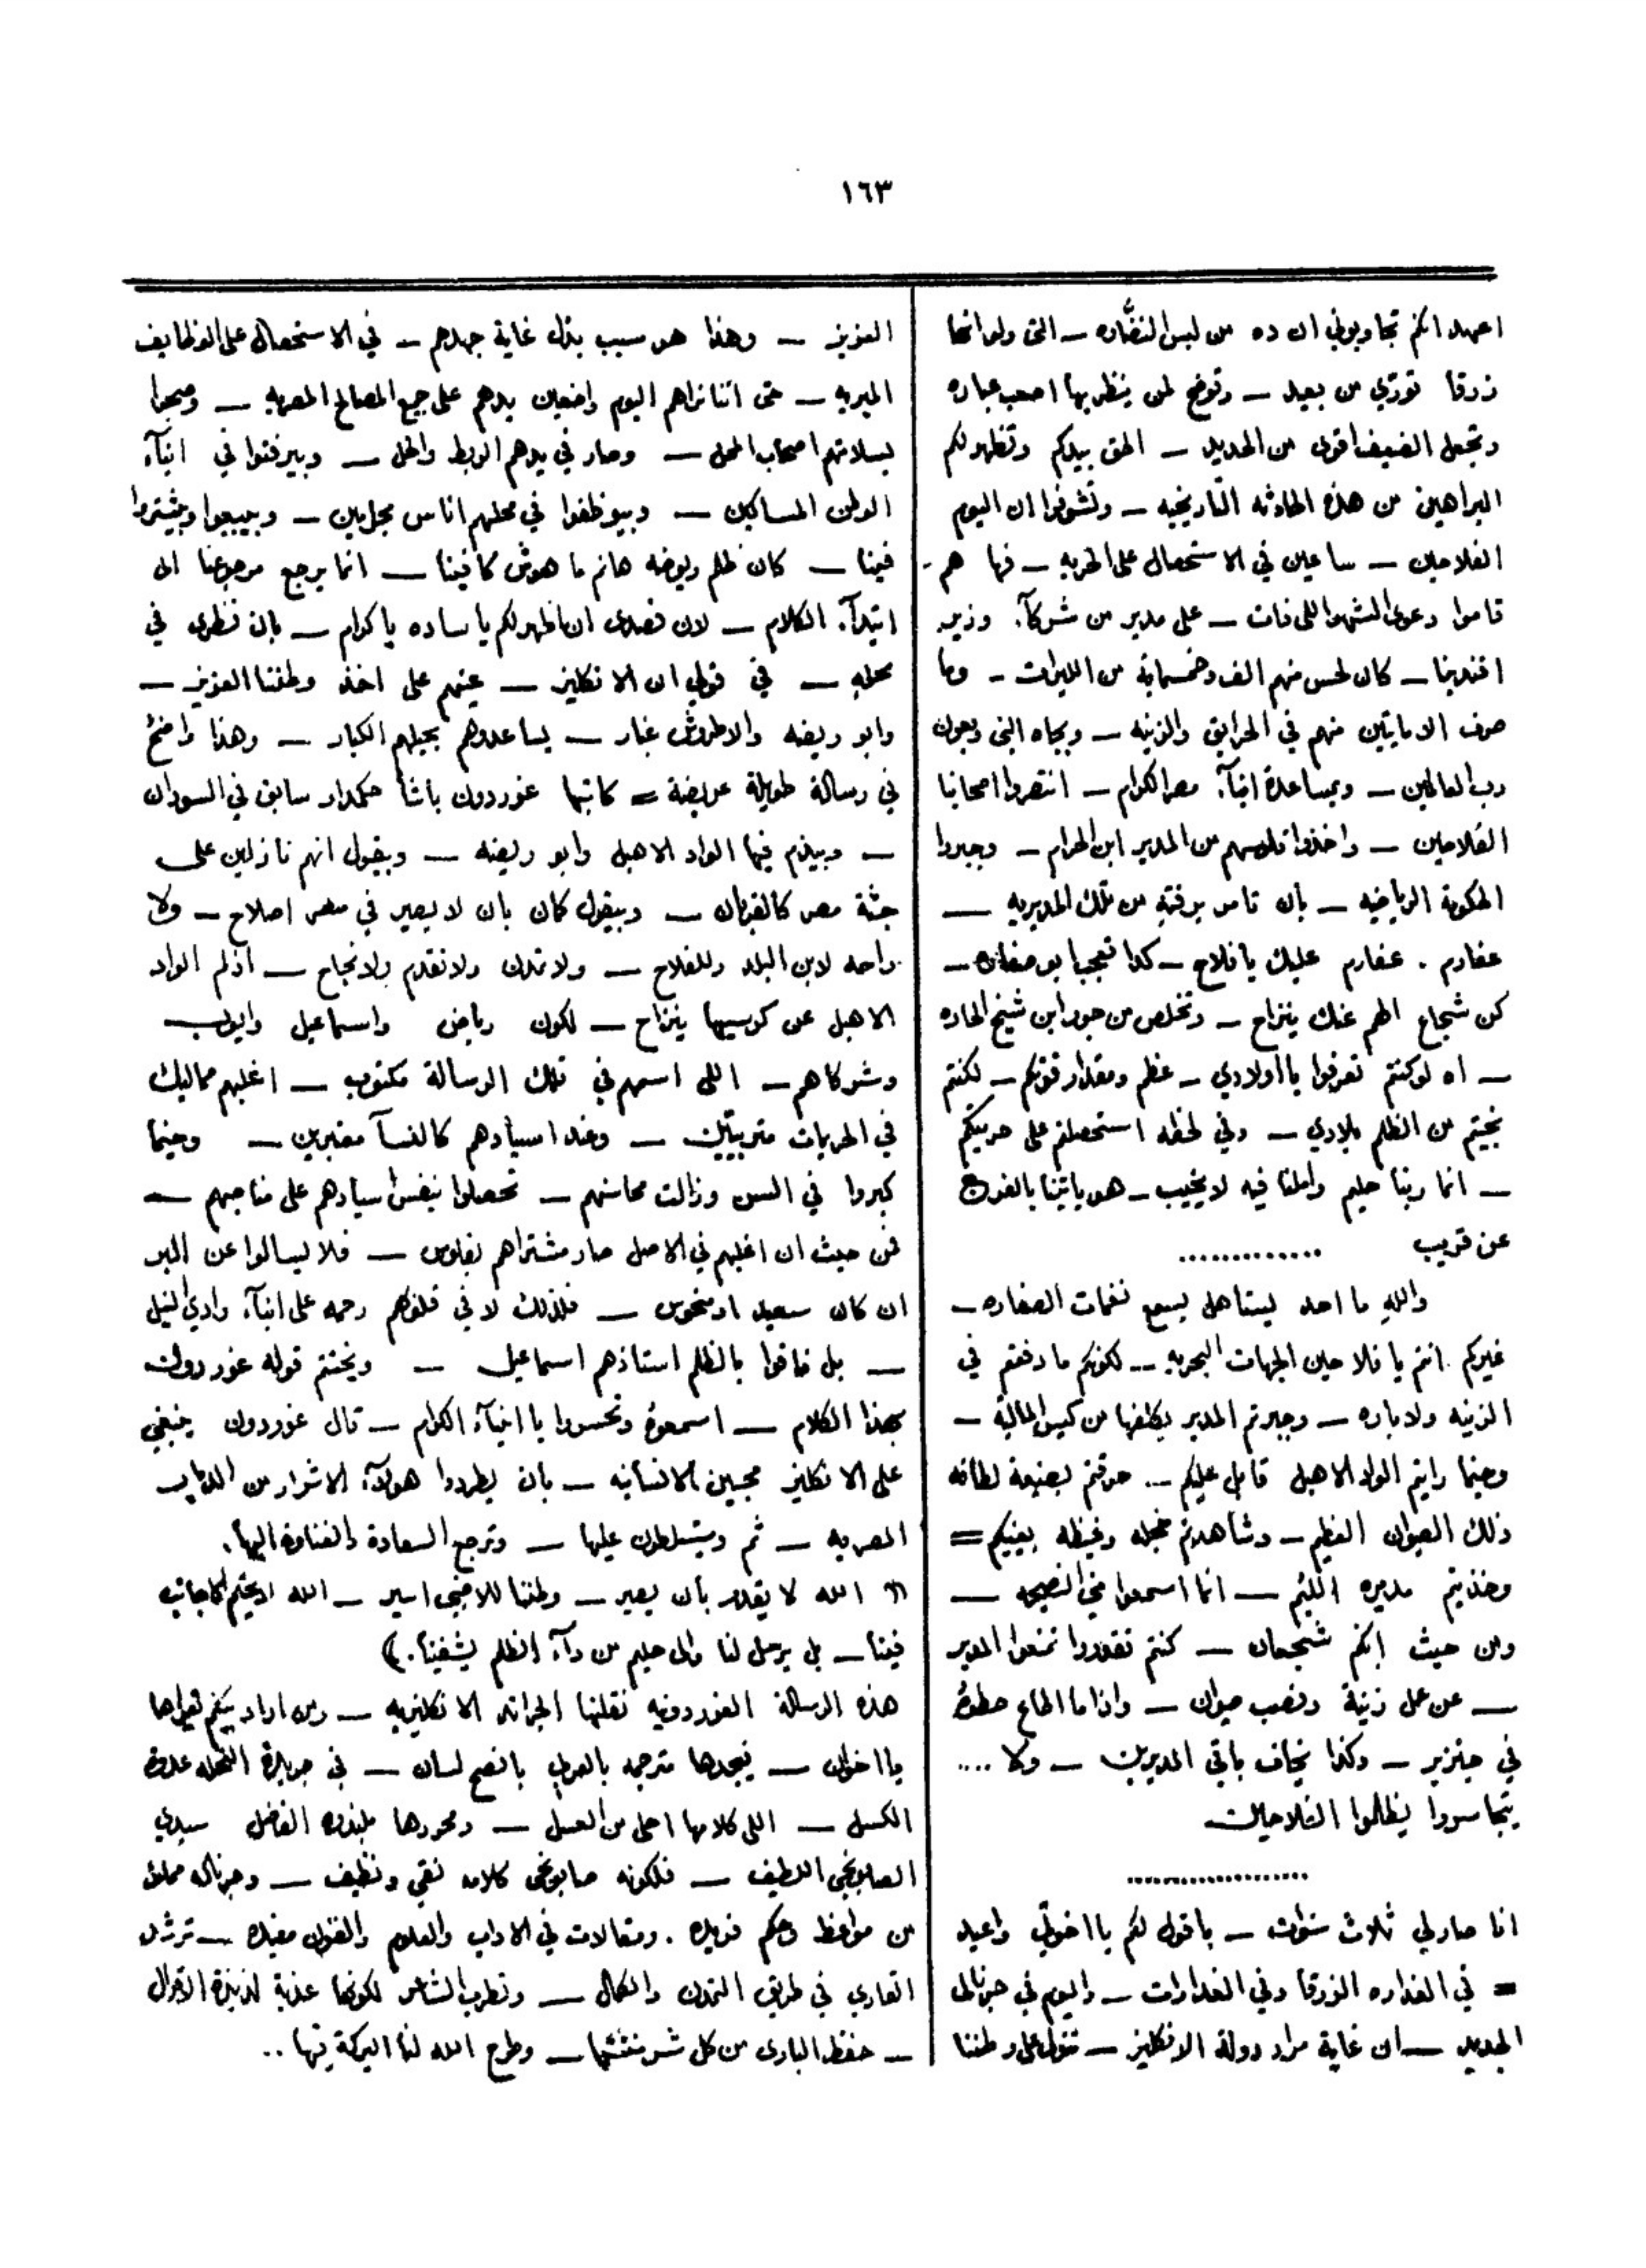 ١٦٣
اعهد انكم تجاوبوني ان ده من لبس النضاره ــ التي ولو انها
زرقا تورّي من بعيد ــ وتوضح لمن ينظر بها اصعب عباره
وتجعل الضعيف اقوى من الحديد ــ الحق بيدكم وتظهر لكم
البراهين من هذه الحادثه التاريخيه ــ وتشوفوا ان اليوم
الفلاحين ــ ساعين في الاستحصال على الحريه ــ فها هم ــ
قاموا دعوى الشهر اللي فات ــ على مدير من شركآء وزير
افندينا ــ كان لحس منهم الف وخمسماية من الليرات ــ وما
صرف الا مايتين منهم في الحرايق والزينه ــ وبجاه النبي وبعون
رب العالمين ــ وبمساعدة ابنآء مصر الكرام ــ انتصروا اصحابنا
الفلاحين ــ واخذوا فلوسهم من المدير ابن الحرام ــ وجبروا
الحكومة الرياضيه ــ بأن تامر برفته من تلك المديريه ــ
عفارم . عفارم عليك يا فلاح ــ كدا تعجب ابو صفاره ــ
كن شجاع الهم عنك ينزاح ــ وتخلص من جور ابن شيخ الحاره
ــ اه لو كنتم تعرفوا يا اولادي ــ عظم ومقدار قوتكم ــ لكنتم
نجيتم من الظلم بلادي ــ وفي لحظه استحصلتم على حريتكم
ــ انما ربنا حليم واملنا فيه لا يخيب ــ هو ياتينا بالفرج
عن قريب .............
والله ما احد يستاهل يسمع نغمات الصفاره ــ
غيركم . انتم يا فلاحين الجهات البحريه ــ لكونكم ما دفعتم في
الزينه ولا باره ــ وجبرتم المدير يكلفها من كيس المالية ــ
وحينما رايتم الواد الاهبل قابل عليكم ــ حرقتم بصنعة لطافه
ذلك الصيوان العظيم ــ وشاهدتم خجله وغيظه بعينيكم =
وخذيتم مديره اللئيم ــ انما اسمعوا مني النصيحه ــ
ومن حيث إنكم شجعان ــ كنتم تقدروا تمنعوا المدير
ــ عن عمل زينة ونصب صيوان ــ واذا ما اطاع حطوه
في جنزير ــ وكذا يخاف باقي المديرين ــ ولا ....
يتجاسروا يظلموا الفلاحين
....................
انا صار لي ثلاث سنوات ــ باقول لكم يا اخواني واعيد
= في النضاره الزرقا وفي النضارات ــ واليوم في جرنالي
الجديد ــ ان غاية مراد دولة الانكليز ــ تتولى على وطننا
العزيز ــ وهذا هو سبب بذل غاية جهدهم ــ في الاستحصال على الوظايف
الميريه ــ حتى اننا نراهم اليوم واضعين يدهم على جميع المصالح المصريه ــ وصبحوا
بسلامتهم اصحاب المحل ــ وصار في يدهم الربط والحل ــ وبيرفتوا في ابنآء
الوطن المساكين ــ وبيوظفوا في محلهم اناس مجلين ــ وبيبيعوا وبيشتروا
فينا ــ كان ظلم ريوضه هانم ما هوش كافينا ــ انما يرجع مرجوعنا الى
ابتدآء الكلام ــ لان قصدى ان اظهر لكم يا ساده يا كرام ــ بان نظرى في
محله ــ في قولي ان الانكليز ــ عينهم على اخذ وطننا العزيز ــ
وابو ريضه والاطروش غبار ــ يساعدوهم بحيلهم الكبار ــ وهذا واضح
في رسالة طويلة عريضة = كاتبها غوردون باشا حكمدار سابق في السودان
ــ وبيذم فيها الواد الاهبل وابو ريضه ــ وبيقول انهم نازلين على
جثة مصر كالغربان ــ وبيقول كان بان لا يصير في مصر اصلاح ــ ولا
راحه لابن البلد وللفلاح ــ ولا تمدن ولا تقدم ولا نجاح ــ اذ لم الواد
الاهبل عن كرسيها ينزاح ــ لكون رياض واسماعيل وايوب
وشركاهم ــ اللي اسمهم في تلك الرسالة مكتوب ــ اغلبهم مماليك
في الحريمات متربيين ــ وعند اسيادهم كالنسآ معتبرين ــ وحينما
كبروا في السن وزالت محاسنهم ــ تحصلوا بنفس اسيادهم على مناصبهم ــ
فمن حيث ان اغلبهم في الاصل صار مشتراهم بفلوس ــ فلا يسالوا عن البر
ان كان سعيد او منحوس ــ فلذلك لا في قلوبهم رحمه على ابنآء وادي النيل
ــ بل فاقوا بالظلم استاذهم اسماعيل ــ ويختتم قوله غوردون
بهذا الكلام ــ اسمعوه وتحسروا يا ابنآء الكرام ــ قال غوردون ينبغي
على الانكليز محبين الانسانيه ــ بأن يطردوا هولآء الاشرار من الديار
المصريه ــ ثم ويتسلطون عليها ــ وترجع السعادة والغناوة اليها .
(( الله لا يقدر بأن يصير ــ وطننا للاجنبي اسير ــ الله لا يحكم الاجانب
فينا ــ بل يرسل لنا والى حليم من دآء الظلم يشفينا . ))
هذه الرسالة الغوردونيه نقلتها الجراند الانكليزيه ــ ومن اراد منكم يقراها
يا اخوان ــ يجدها مترجمه بالعربي بافصح لسان ــ في جريدة النحله عدوة
الكسل ــ اللي كلامها احلى من العسل ــ ومحررها الفاضل سيدي
الصابونجي اللطيف ــ فلكونه صابونجي كلامه نقي ونظيف ــ وجرناله مملو
من مواعظ وحكم فريده . ومقالات في الاداب والعلوم والفنون مفيده ــ ترشد
القاري في طريق التمدن والكمال ــ وتطرب الشاعر لكونها عذبة لذيذة الاقوال
ــ حفظ البارى من كل شر منشئها ــ وطرح الله لنا البركة فيها ..